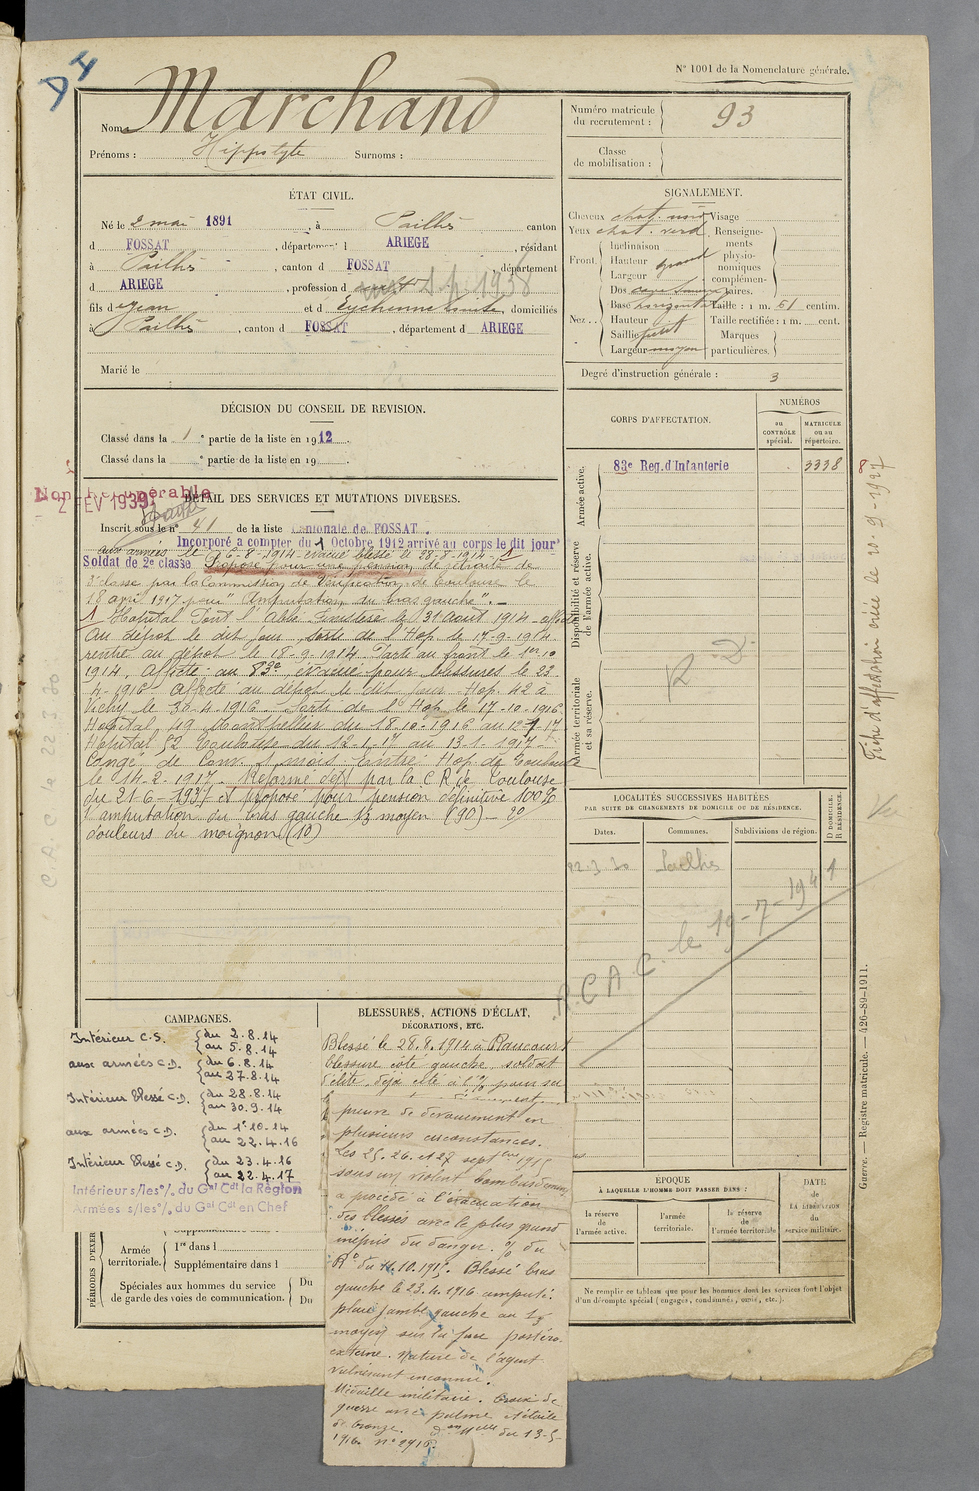 N° 1001 de la Nomenclature générale.
Nom Marchand
Prénoms : Hippolyte Surnoms :
Numéro matricule du recrutement : 93
Classe de mobilisation :
ÉTAT CIVIL.
Né le 2 mai 1891, à Pailhès canton
d FOSSAT, département d ARIEGE, résidant
à Pailhès, canton d FOSSAT, département
d ARIEGE, profession d
S.P. 1938
fils d Jean et d Eychenne, domiciliés
à Pailhès, canton d FOSSAT, département d ARIEGE
Marié le
SIGNALEMENT.
Cheveux chat. noir Visage
Yeux chat. verd Renseignements physionomiques complémentaires.
Front. Inclinaison
Hauteur grand
Largeur
Nez. Dos
Base horizontal Taille : 1 m. 61 centim.
Hauteur Taille rectifiée : 1 m. cent.
Saillie petit Marques particulières.
Largeur moyen
Degré d'instruction générale : 3
DÉCISION DU CONSEIL DE REVISION.
Classé dans la 1 e partie de la liste en 1912.
Classé dans la e partie de la liste en 19 .
CORPS D'AFFECTATION.
NUMÉROS
au CONTRÔLE spécial.
MATRICULE ou au répertoire.
Armée active.
83e Reg. d'Infanterie 3338
Disponibilité et réserve de l'armée active.
Armée territoriale et sa réserve.
R D
Fiche d'affectation créée le 20-9-1927
Non récupérable
2 FEV 1939
DÉTAIL DES SERVICES ET MUTATIONS DIVERSES.
Inscrit sous le n° 41 de la liste cantonale de FOSSAT.
Incorporé à compter du 1 Octobre 1912 arrivé au corps le dit jour
Soldat de 2e classe
aux armées le 6-8-1914 évacué blessé le 28-8-1914
Proposé pour une pension de retraite de
classe par la Commission de Vérification de Toulouse le
18 avril 1917 pour "Amputation du bras gauche". —
1 Hopital Pont l'Abbé Finistère le 31 Août 1914 - affecté
au dépôt le dit jour, sorti de l'Hop. le 17-9-1914
rentré au dépôt le 18-9-1914. Parti au front le 1er-10
1914, Affecté au 83e, évacué pour blessures le 23
4-1916 affecté au dépôt le dit jour - Hop. 42 à
Vichy le 30-4-1916 - Sorti de l'Hop. le 17-10-1916
Hopital 49 Montpellier du 18-10-1916 au 12-1-17
Hopital 52 Toulouse du 12-1-17 au 13-1-1917 -
Congé de Conv. 1 mois. Entré Hop. de Toulouse
le 14-2-1917. Réformé par la C R de Toulouse
du 21-6-1937 et proposé pour pension définitive 100%
1° amputation du bras gauche 1/3 moyen (90) - 2°
douleurs du moignon (10)
C.A.C. le 22.3.30
LOCALITÉS SUCCESSIVES HABITÉES
PAR SUITE DE CHANGEMENTS DE DOMICILE OU DE RÉSIDENCE.
Dates. Communes. Subdivisions de région. D DOMICILE. R RÉSIDENCE.
22-3-30 Pailhès
R.C.A.C. le 19-7-1941
CAMPAGNES.
Intérieur C.S. du 2.8.14
au 5.8.14
aux armées C.D. du 6.8.14
au 27.8.14
Intérieur Blessé C.D. du 28.8.14
au 30.9.14
aux armées C.D. du 1er.10.14
au 22.4.16
Intérieur Blessé C.D. du 23.4.16
au 22.4.17
Intérieur s/les %, du Gal Cdt la Région
Armées s/les %, du Gal Cdt en Chef
PÉRIODES D'EXER
Armée territoriale.
1re dans l
Supplémentaire dans l
Spéciales aux hommes du service de garde des voies de communication.
Du
Du
BLESSURES, ACTIONS D'ÉCLAT,
DÉCORATIONS, ETC.
Blessé le 28.8.1914 à Raucourt
blessure côté gauche, soldat
d'élite, déjà cité à l'% pour sa
preuve de dévouement en
plusieurs circonstances.
Les 25-26 et 27 septbre 1915
sous un violent bombardement
a procédé à l'évacuation
des blessés avec le plus grand
mépris du danger. % du
R° du 11.10.1915. Blessé bras
gauche le 23.4.1916 amputé.
plaie jambe gauche au 1/3
moyen sur la face postéro.
externe. Nature de l'agent
vulnérant inconnue.
Médaille militaire. Croix de
guerre avec palme étoile
de bronze. du 13-5-
1916. n° 2916.
EPOQUE
À LAQUELLE L'HOMME DOIT PASSER DANS :
la réserve de l'armée active.
l'armée territoriale.
la réserve de l'armée territoriale
DATE de LA LIBÉRATION du service militaire.
Ne remplir ce tableau que pour les hommes dont les services font l'objet
d'un décompte spécial (engagés, condamnés, omis, etc.).
Guerre. — Registre matricule. — 426-89-1911.